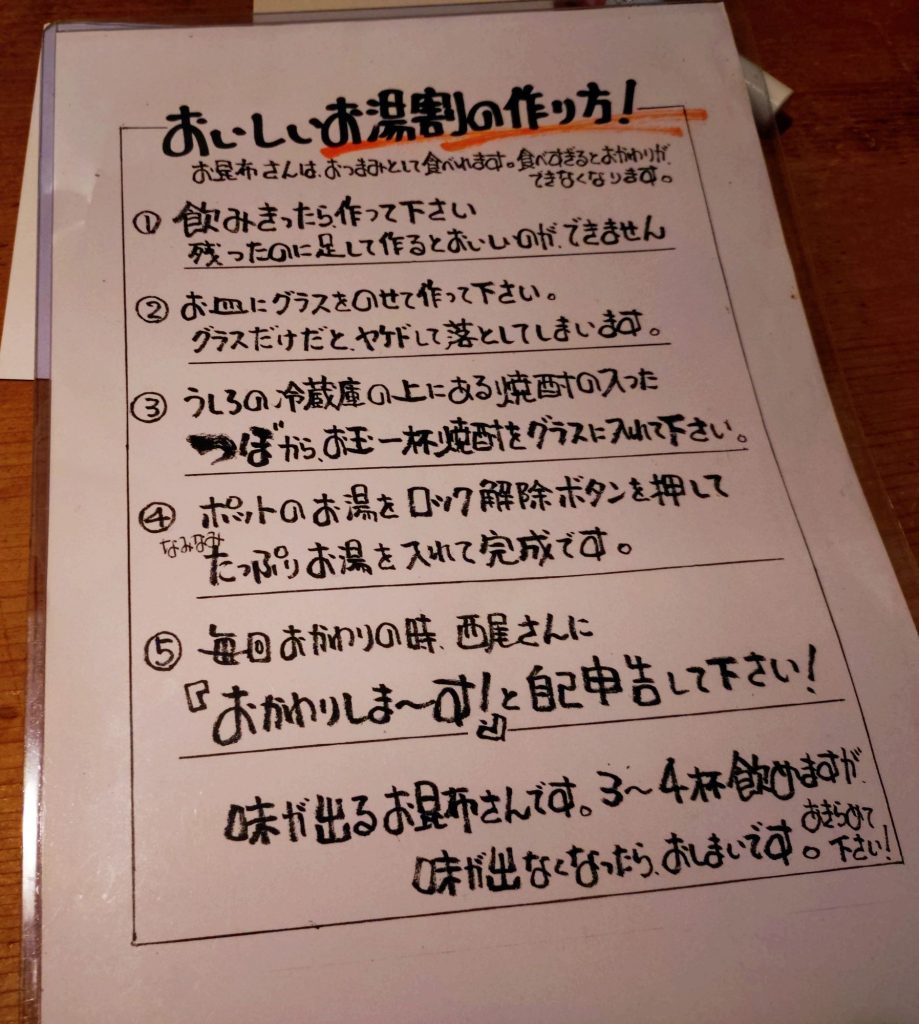 おいしいお湯割の作り方!
お昆布さんは、おつまみとして食べれます。食べすぎるとおかわりが、
できなくなります。
① 飲みきったら、作って下さい
残ったのに足して作るとおいしいのが、できません
② お皿にグラスをのせて作って下さい。
グラスだけだと、ヤケドして落としてしまいます。
③ うしろの冷蔵庫の上にある焼酎の入った
つぼから、お玉一杯焼酎をグラスに入れて下さい。
④ ポットのお湯をロック解除ボタンを押して
なみなみ
たっぷりお湯を入れて完成です。
⑤ 毎回おかわりの時、西尾さんに
『おかわりしま〜す!』と自己申告して下さい!
味が出るお昆布さんです。3〜4杯飲めますが、
味が出なくなったら、おしまいです。
あきらめて
下さい!